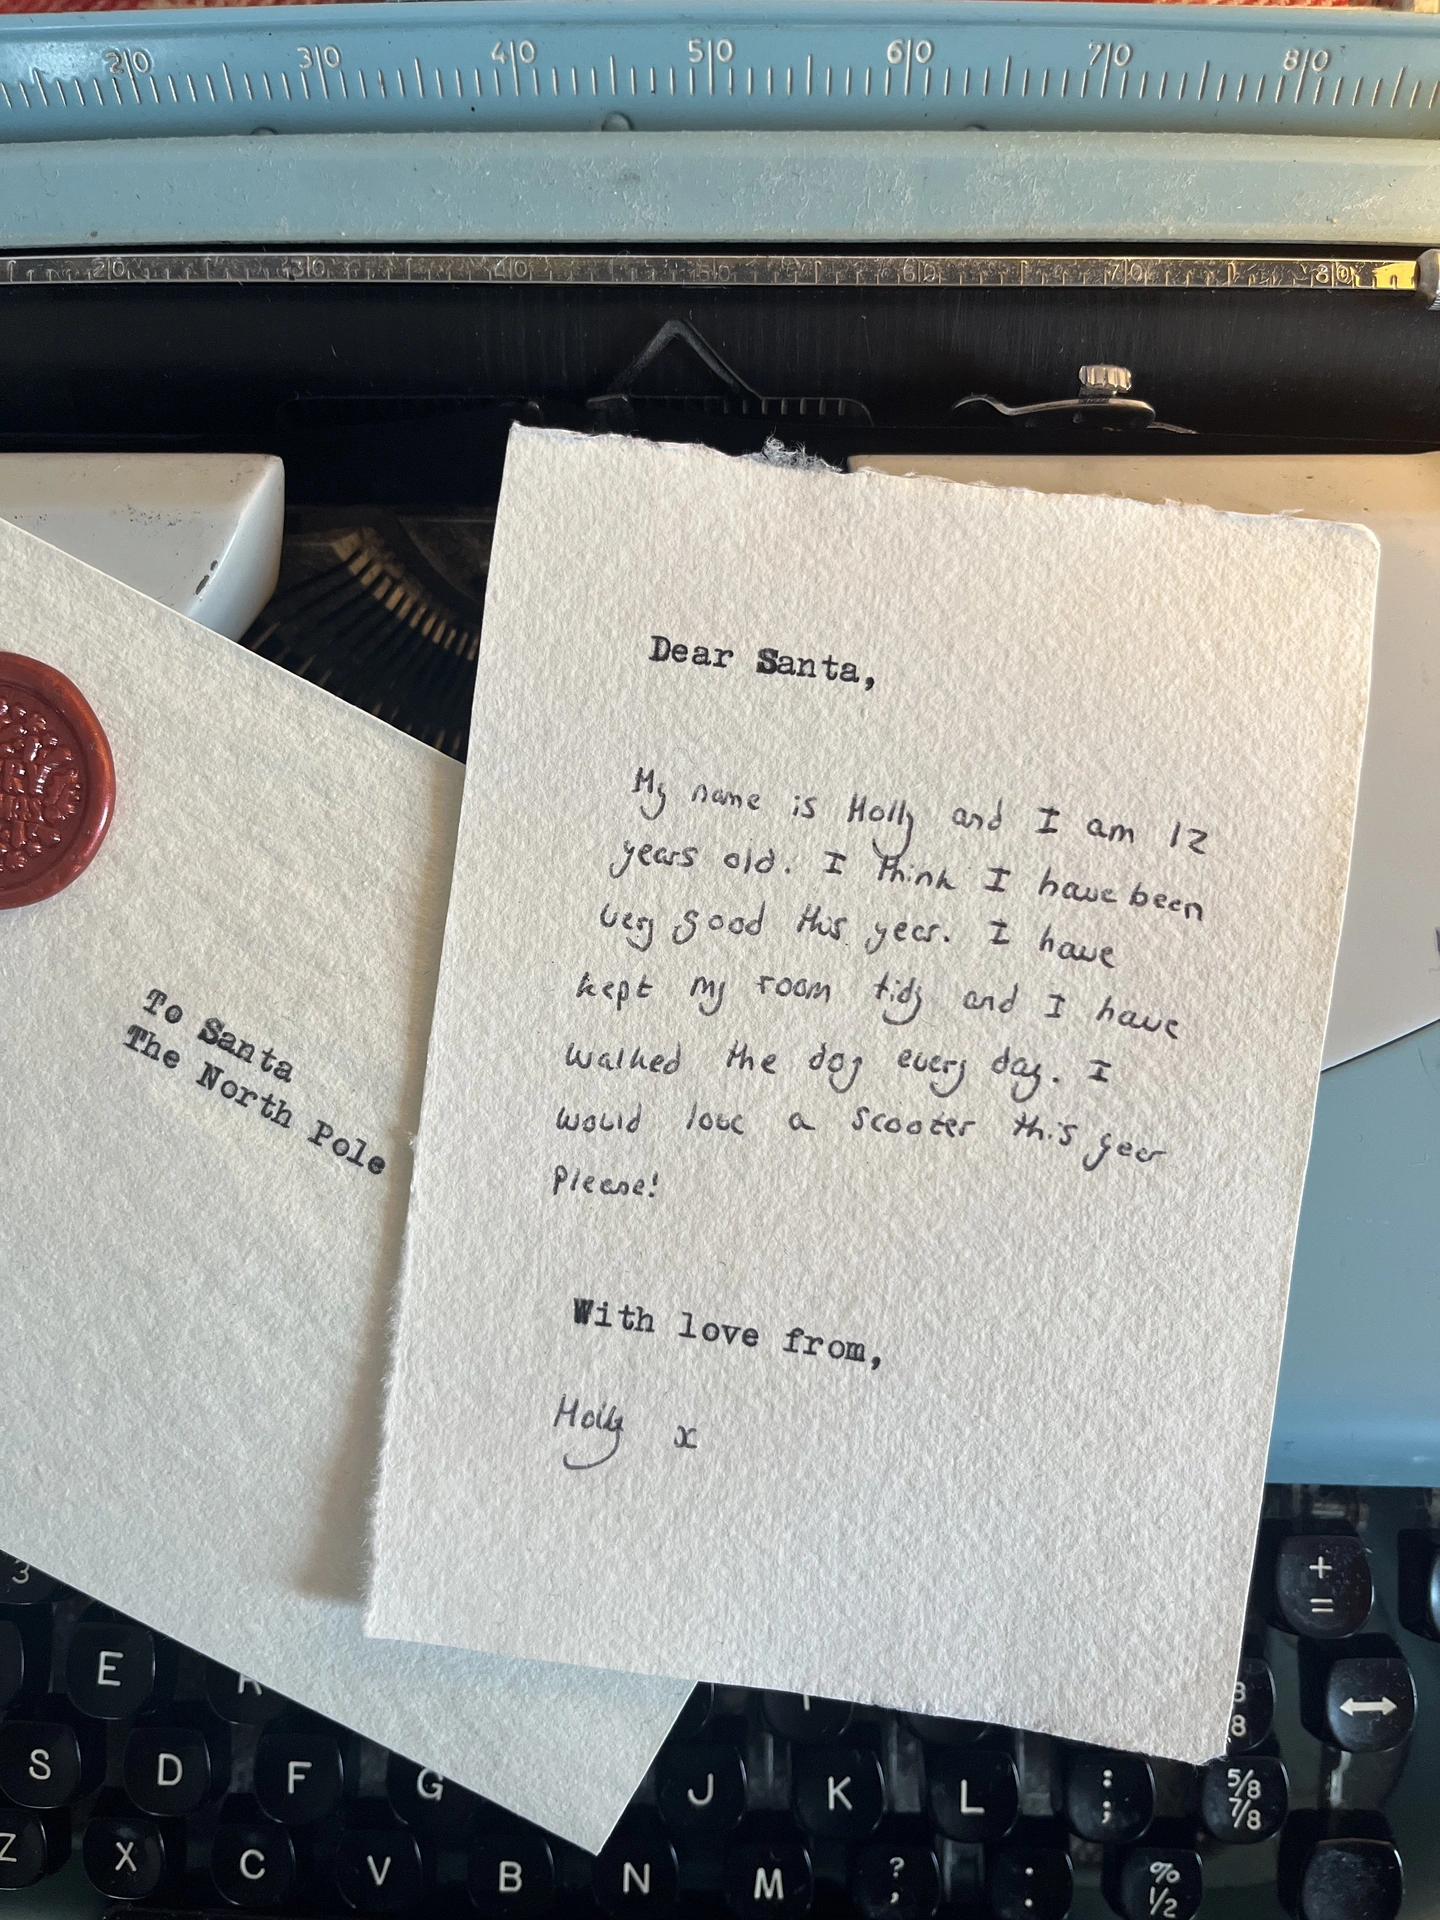 20 30 40 50 60 70 80
20 30 40 50 60 70 80
Dear Santa,
My name is Holly and I am 12
years old. I think I have been
very good this year. I have
kept my room tidy and I have
walked the dog every day. I
would love a scooter this year
please!
With love from,
Holly x
To Santa
The North Pole
3 + =
E R
8 ↔
S D F G J K L : ; 5/8 7/8
Z X C V B N M ? , . : % 1/2